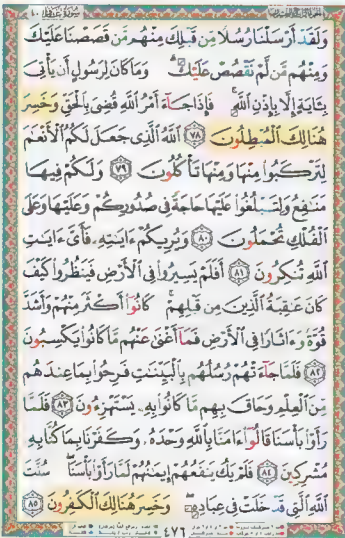 الجزء الرابع والعشرون سورة غافر ٤٠
وَلَقَدْ أَرْسَلْنَا رُسُلًا مِّن قَبْلِكَ مِنْهُم مَّن قَصَصْنَا عَلَيْكَ
وَمِنْهُم مَّن لَّمْ نَقْصُصْ عَلَيْكَ ۗ وَمَا كَانَ لِرَسُولٍ أَن يَأْتِىَ
بِـَٔايَةٍ إِلَّا بِإِذْنِ ٱللَّهِ ۚ فَإِذَا جَآءَ أَمْرُ ٱللَّهِ قُضِىَ بِٱلْحَقِّ وَخَسِرَ
هُنَالِكَ ٱلْمُبْطِلُونَ ٧٨ ٱللَّهُ ٱلَّذِى جَعَلَ لَكُمُ ٱلْأَنْعَٰمَ
لِتَرْكَبُوا۟ مِنْهَا وَمِنْهَا تَأْكُلُونَ ٧٩ وَلَكُمْ فِيهَا
مَنَٰفِعُ وَلِتَبْلُغُوا۟ عَلَيْهَا حَاجَةً فِى صُدُورِكُمْ وَعَلَيْهَا وَعَلَى
ٱلْفُلْكِ تُحْمَلُونَ ٨٠ وَيُرِيكُمْ ءَايَٰتِهِۦ فَأَىَّ ءَايَٰتِ
ٱللَّهِ تُنكِرُونَ ٨١ أَفَلَمْ يَسِيرُوا۟ فِى ٱلْأَرْضِ فَيَنظُرُوا۟ كَيْفَ
كَانَ عَٰقِبَةُ ٱلَّذِينَ مِن قَبْلِهِمْ ۚ كَانُوٓا۟ أَكْثَرَ مِنْهُمْ وَأَشَدَّ
قُوَّةً وَءَاثَارًا فِى ٱلْأَرْضِ فَمَآ أَغْنَىٰ عَنْهُم مَّا كَانُوا۟ يَكْسِبُونَ
٨٢ فَلَمَّا جَآءَتْهُمْ رُسُلُهُم بِٱلْبَيِّنَٰتِ فَرِحُوا۟ بِمَا عِندَهُم
مِّنَ ٱلْعِلْمِ وَحَاقَ بِهِم مَّا كَانُوا۟ بِهِۦ يَسْتَهْزِءُونَ ٨٣ فَلَمَّا
رَأَوْا۟ بَأْسَنَا قَالُوٓا۟ ءَامَنَّا بِٱللَّهِ وَحْدَهُۥ وَكَفَرْنَا بِمَا كُنَّا بِهِۦ
مُشْرِكِينَ ٨٤ فَلَمْ يَكُ يَنفَعُهُمْ إِيمَٰنُهُمْ لَمَّا رَأَوْا۟ بَأْسَنَا ۖ سُنَّتَ
ٱللَّهِ ٱلَّتِى قَدْ خَلَتْ فِى عِبَادِهِۦ ۖ وَخَسِرَ هُنَالِكَ ٱلْكَٰفِرُونَ ٨٥
٤٧٦